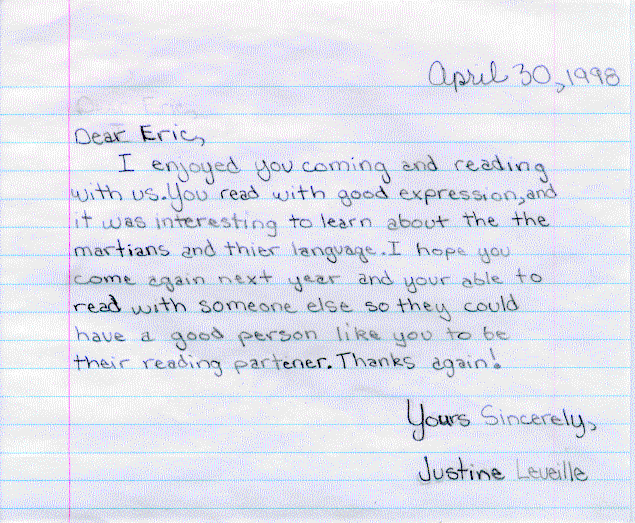 April 30, 1998
Dear Eric,
I enjoyed you coming and reading
with us. You read with good expression, and
it was interesting to learn about the the
martians and thier language. I hope you
come again next year and your able to
read with someone else so they could
have a good person like you to be
their reading partener. Thanks again!
Yours Sincerely,
Justine Leveille